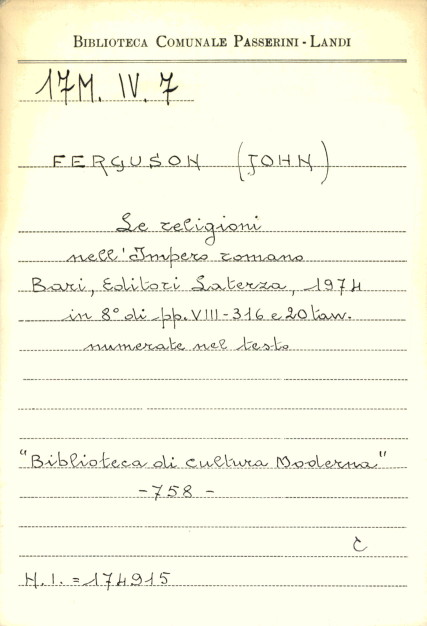 BIBLIOTECA COMUNALE PASSERINI - LANDI
17M. IV. 7
FERGUSON (JOHN)
Le religioni
nell'Impero romano
Bari, Editori Laterza, 1974
in 8° di pp. VIII-316 e 20 tav.
numerate nel testo
"Biblioteca di cultura Moderna"
-758-
C
N.I. = 174915